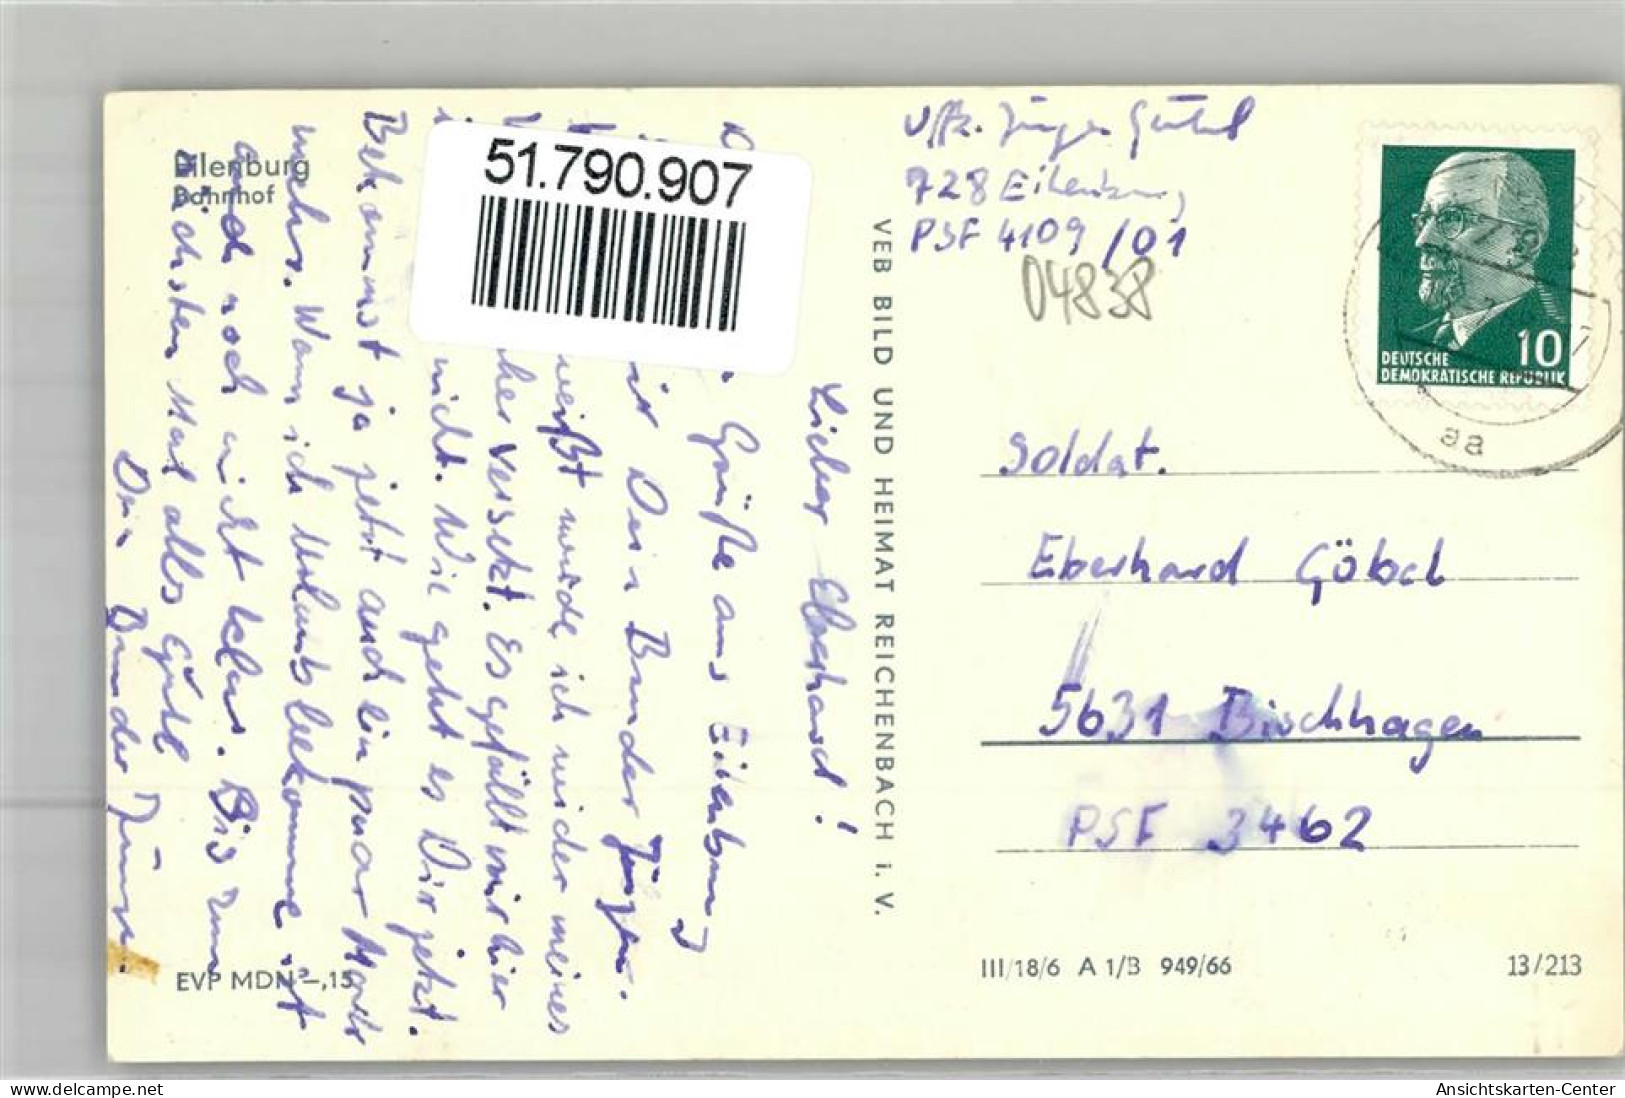 Eilenburg
Bahnhof
51.790.907
Lieber Eberhard!
Grüße aus Eilenburg
Dein Bruder
weißt wurde ich wieder meines
versetzt. Es gefällt mir hier
nicht. Wie geht es Dir jetzt.
Bekommst ja jetzt auch ein paar Mark
mehr. Wann ich Urlaub bekomme ist
auch noch nicht klar. Bis zum
nächsten Mal alles Gute
Dein Bruder Jürgen.
EVP MDN -,15
VEB BILD UND HEIMAT REICHENBACH i. V.
Uffz. Jürgen Göbel
728 Eilenburg
PSF 4109/01
04838
10
DEUTSCHE
DEMOKRATISCHE REPUBLIK
aa
Soldat.
Eberhard Göbel
5631 Bischhagen
PSF 3462
III/18/6 A 1/B 949/66
13/213
www.delcampe.net
Ansichtskarten-Center